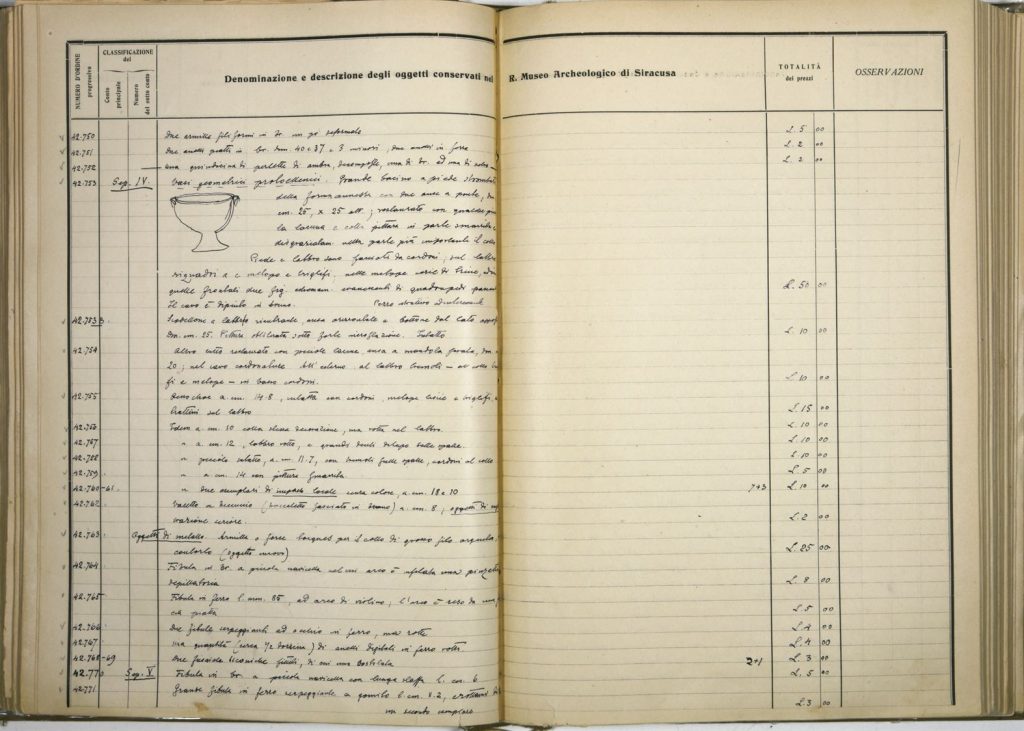 NUMERO D'ORDINE progressivo
CLASSIFICAZIONE del
Conto principale
Numero del sotto conto
Denominazione e descrizione degli oggetti conservati nel R. Museo Archeologico di Siracusa
TOTALITÀ dei prezzi
OSSERVAZIONI
42.750 Due armille filiformi in br. un po' deformate L. 5 00
42.751 Due anelli piatti in br. dmm. 40 e 37 e 3 minori, due anelli in ferro L. 2 00
42.752 una quindicina di perlette di ambra, decomposte, una di br. ed una di L. 2 00
42.753 Sep. IV. Vasi geometrici Grande bacino a piede
della forma con due anse a ponte,
cm. 25, x 25 alt.; restaurato con qualche
la lacuna e colla pittura in parte smarrita
nella parte più importante il
Piede e labbro sono fasciati da cordoni, sul labbro
riquadri a metope e triglifi, nelle metope serie di
quelle frontali due evanescenti di quadrupedi
Il cavo è dipinto in bruno. L. 50 00
42.753 B
Dm. cm. 25. Pitture obliterate sotto forte incrostazione. Intatto L. 10 00
42.754 Altro tutto restaurato con piccole lacune, ansa a mandola forata,
20; nel cavo cordonature. All'esterno al labbro tremoli — al collo
fi e metope — in basso cordoni. L. 10 00
42.755 Oenochoe a cm. 14.8, intatta con cordoni, metope e triglifi,
sul labbro L. 15 00
42.756 Idem a cm. 10 colla stessa decorazione, ma rotta nel labbro. L. 10 00
42.757 " a cm. 12, labbro rotto, e grandi denti di lupo sulle spalle. L. 10 00
42.758 " piccolo intatto, a cm. 11.7, con tremoli sulle spalle, cordoni al collo L. 10 00
42.759 " a cm. 14 con pittura smarrita L. 5 00
42.760-61 " due esemplari di impasto locale senza colore, a cm. 18 e 10 7+3 L. 10 00
42.762 Vasetto a fasciato in bruno) a cm. 8; oggetti di
L. 2 00
42.763 Oggetti di metallo. Armilla o forse torques per il collo di grosso filo
contorto (oggetto nuovo) L. 25 00
42.764 Fibula in br. a piccola navicella nel cui arco è infilata una
depilatoria L. 8 00
42.765 Fibula in ferro l. mm. 85, ad arco di violino; l'arco è reso da
piatta L. 5 00
42.766 Due fibule serpeggianti ad occhio in ferro, ma rotte L. 4 00
42.767 una quantità (circa 1/2 dozzina) di anelli digitali in ferro rotti. L. 4 00
42.768-69 Due fusaiole biconiche fittili, di cui una 2+1 L. 3 00
42.770 Sep. V. Fibula in br. a piccola navicella con lunga staffa l. cm. 6 L. 5 00
42.771 Grande fibula in ferro serpeggiante a gomito l. cm. 8.2,
un secondo esemplare L. 3 00